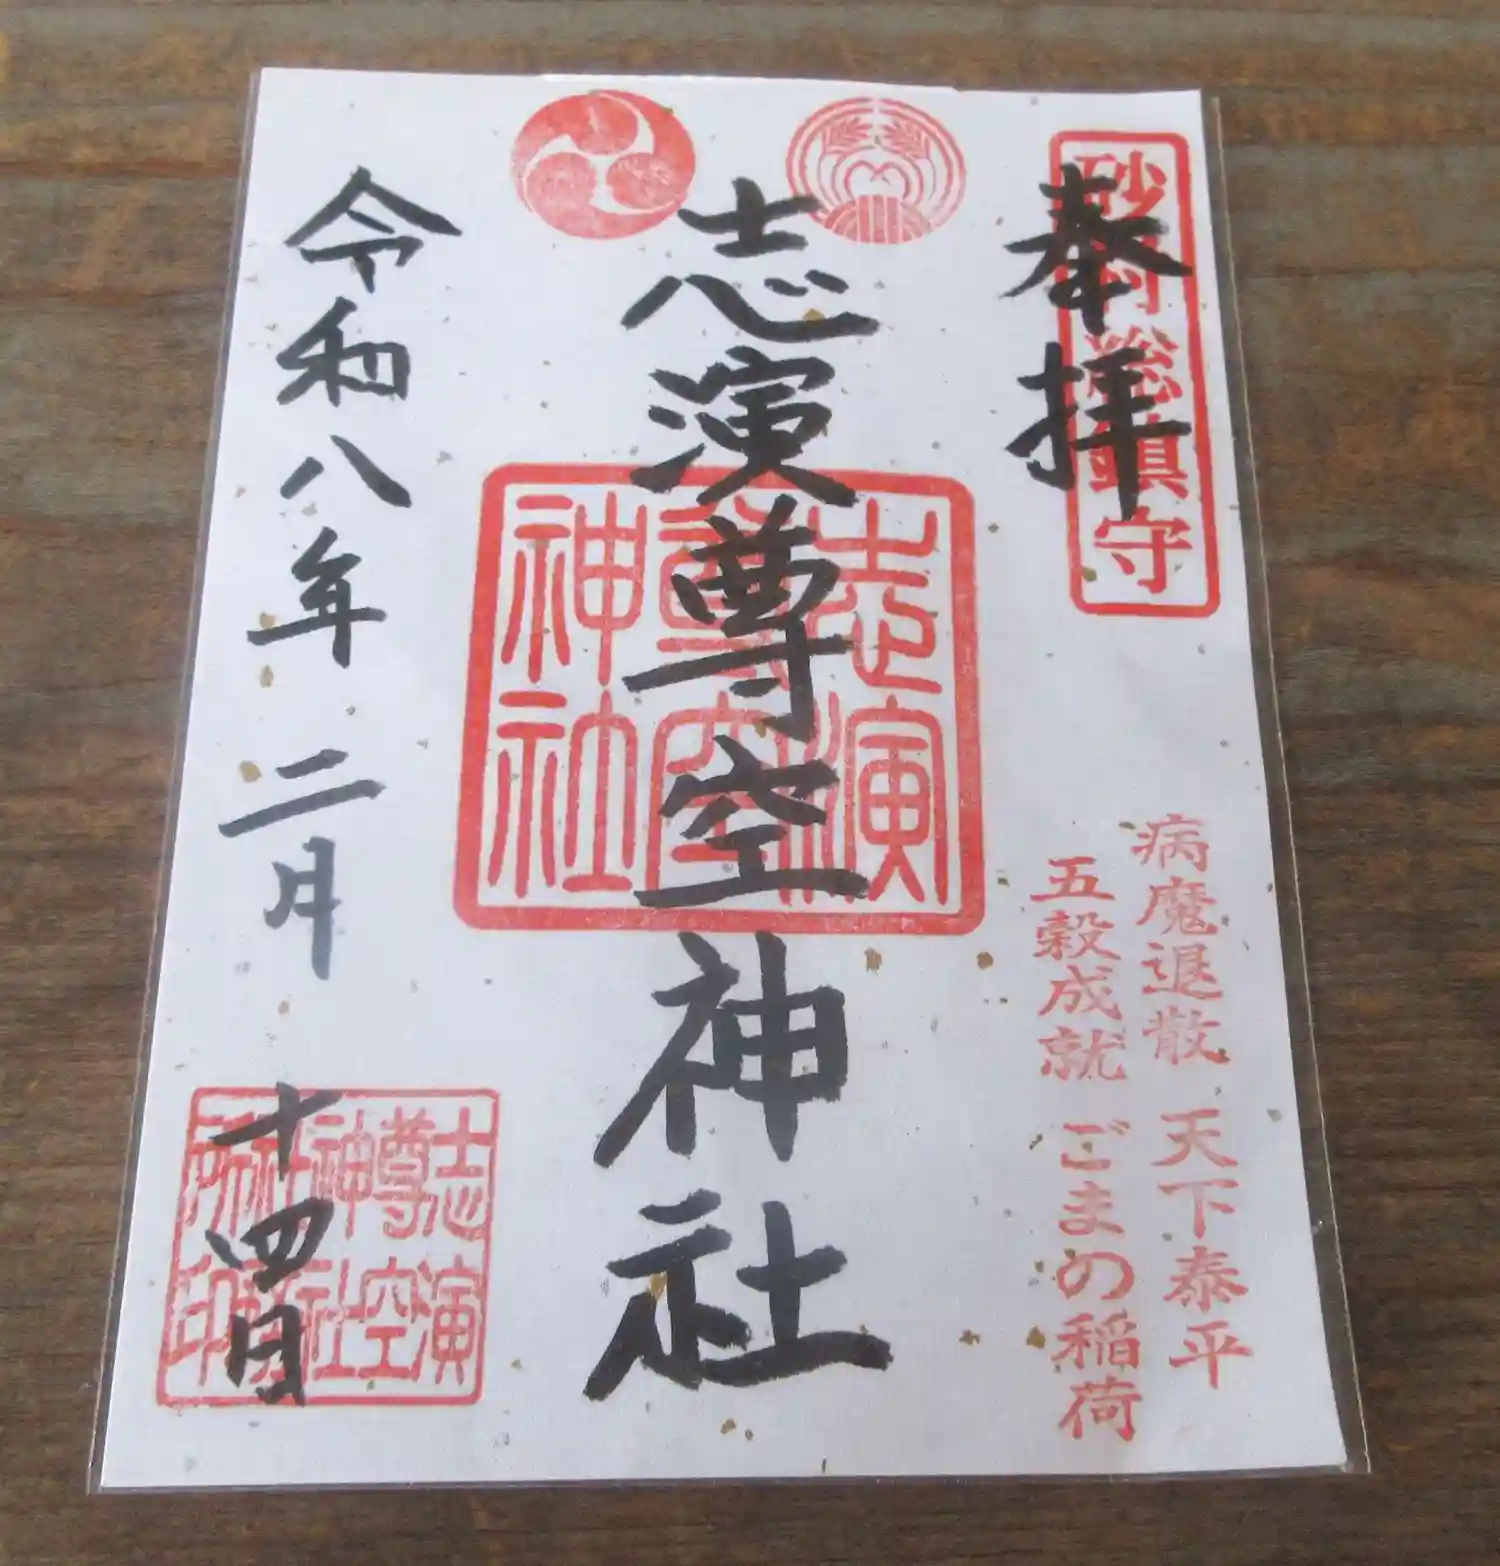 奉拝
砂村総鎮守
病魔退散 天下泰平
五穀成就 ごまの稲荷
志演尊空神社
志演
尊空
神社
令和八年二月十四日
志演
尊空
神社
社務
所印